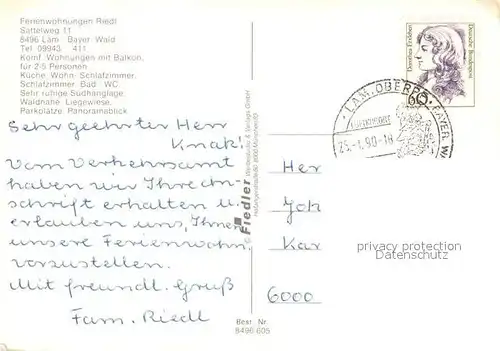 Ferienwohnungen Riedl
Sattelweg 11
8496 Lam Bayer. Wald
Tel 09943 411
Komf. Wohnungen mit Balkon,
für 2-5 Personen
Küche, Wohn- Schlafzimmer,
Schlafzimmer, Bad WC.
Sehr ruhige Südhanglage.
Waldnähe Liegewiese.
Parkplätze, Panoramablick
Sehr geehrter Herr
Knak!
Vom Verkehrsamt
haben wir Ihre
schrift erhalten u.
erlauben uns, Ihnen
unsere Ferienwohn.
vorzustellen.
Mit freundl. Gruß
Fam. Riedl
Best. Nr.
8496 605
Fiedler
Dorothea Erxleben
Deutsche Bundespost
60
LAM, OBERPF. BAYER W
LUFTKURORT
90-18
Her
Kar
6000
privacy protection